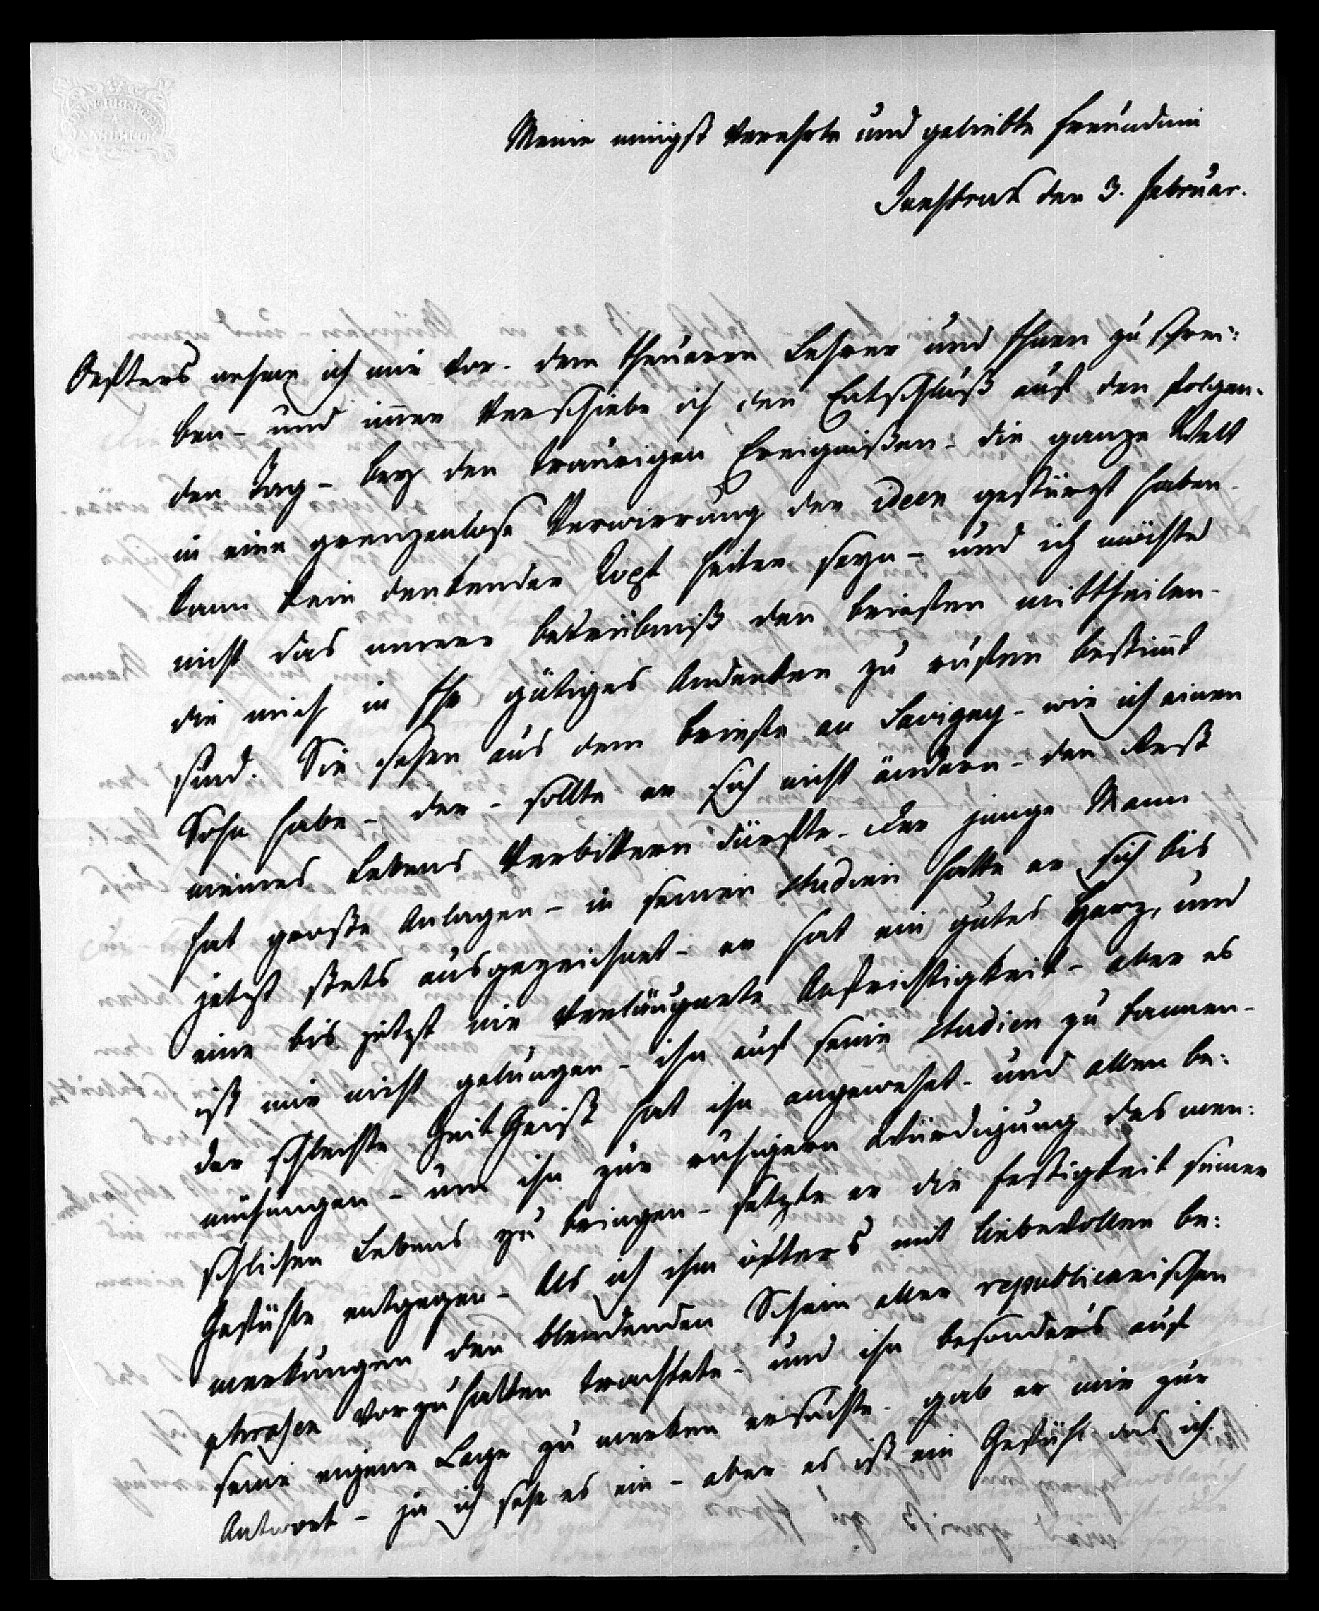 Meine innigst Verehrte und geliebte Freundinn
Innsbruck den 3. Februar.
Oefters nehme ich mir vor. dem theueren Lehrer und Ihnen zu schrei:
ben – und immer Verschiebe ich den Entschluß auf den folgen-
den Tag – bey den traurigen Ereignißen. die ganze Welt
in eine grenzenlose Verwirrung der ideen gestürzt haben.
kann kein denkender Kopf heiter seyn – und ich möchte
nicht das innere betrübniß den briefen mittheilen.
die mich in Ihr gütiges Andenken zu rufen bestimmt
sind. Sie sehen aus dem briefe an Savigny – wie ich einen
Sohn habe – der – sollte er sich nicht ändern – den Rest
meines Lebens Verbittern dürfte. der junge Mann
hat große Anlagen – in seinen studien hatte er sich bis
jetzt stets ausgezeichnet – er hat ein gutes Herz, und
eine bis jetzt nie Verläugnete Aufrichtigkeit – aber es
ist mir nicht gelungen – ihn auf seine studien zu bannen –
der schlechte ZeitGeist hat ihn angewehet – und allen be:
mühungen – um ihn zur ruhigern Würdigung des men:
schlichen Lebens zu bringen – setzte er die festigkeit seiner
Gefühle entgegen – Als ich ihm öfters mit liebevollen be:
merkungen den blendenden Schein aller republicanischen
phrasen vorzuhalten trachtete – und ihn besonders auf
seine eigene Lage zu merken ersuchte. gab er mir zur
Antwort – ja ich sehe es ein – aber es ist ein Gefühl das ich